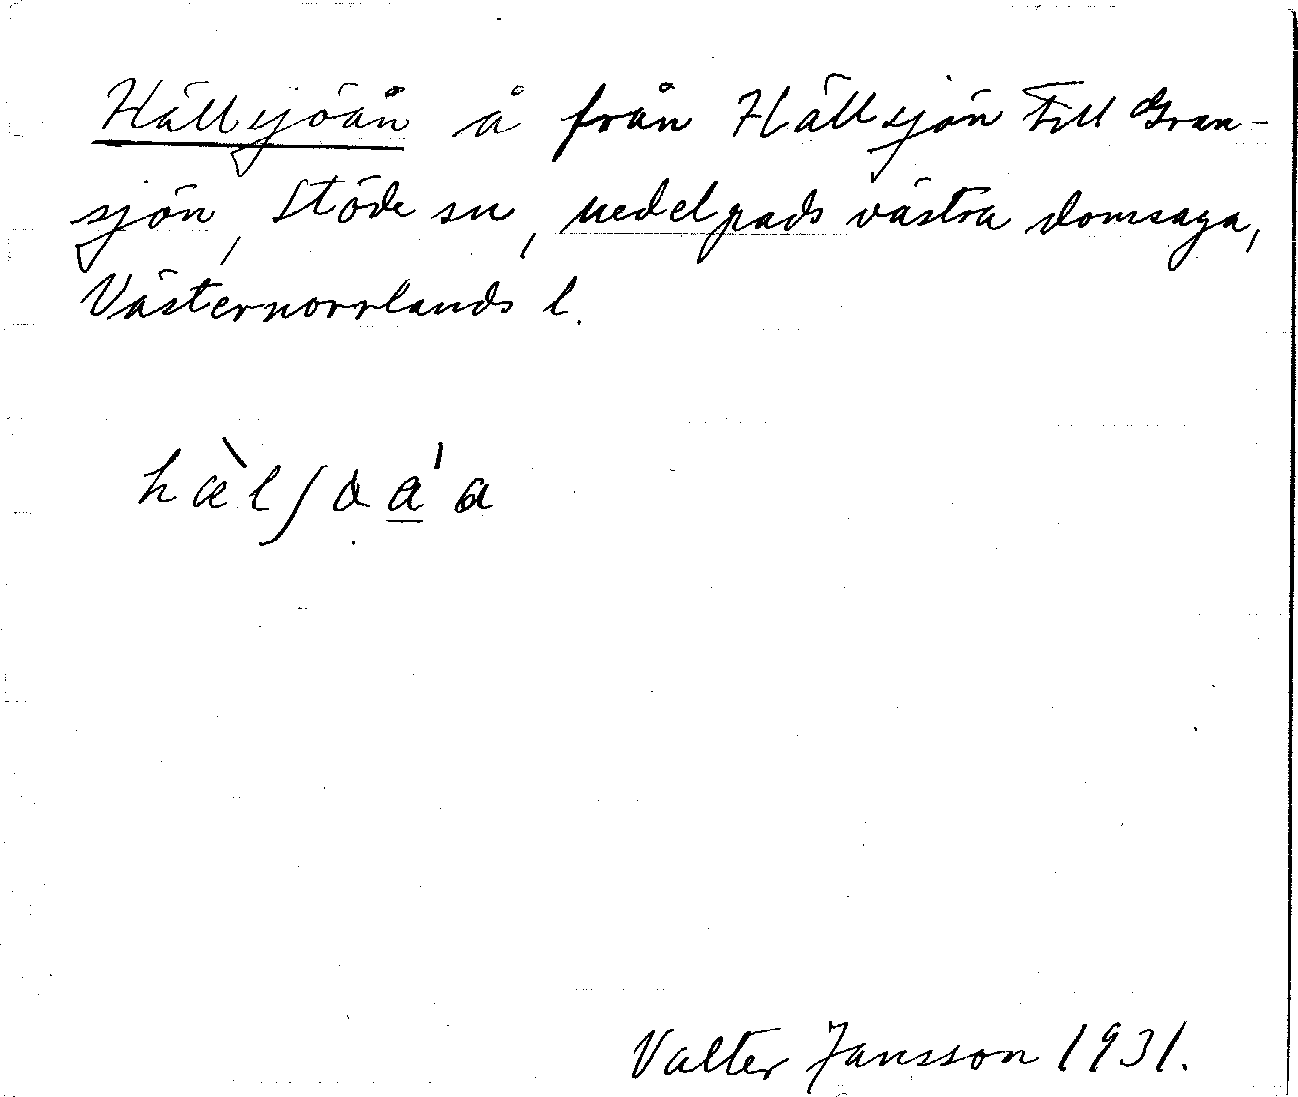 Hällsjöån å från Hällsjön till Gran-
sjön, Stöde sn, Medelpads västra domsaga,
Västernorrlands l.
hæ̀lʃɷa̲ˈa
Valter Jansson 1931.